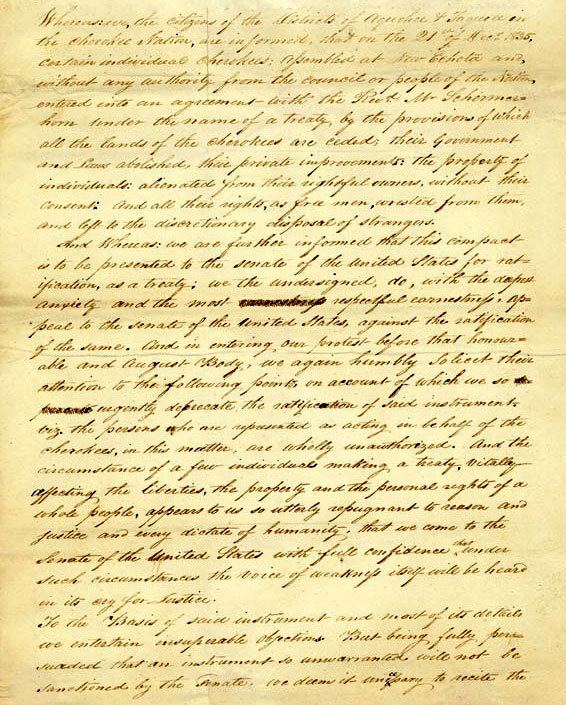 Whereas, we, the citizens of the districts of Aquohee & Taquoee in
the Cherokee Nation, are informed, that on the 21st of Decr. 1835,
certain individual Cherokees; assembled at New Echota and
without any authority from the council or people of the Nation,
entered into an agreement with the Revd. Mr Schermer-
horn under the name of a treaty, by the provisions of which
all the lands of the Cherokees are ceded; their Government
and Laws abolished, their private improvements: the property of
individuals: alienated from their rightful owners, without their
consent: And all their rights, as free men, wrested from them,
and left to the discretionary disposal of strangers.
And Whereas: we are further informed that this compact
is to be presented to the senate of the united States for rat-
ification, as a treaty; we the undersigned, do, with the deepest
anxiety and the most respectful earnestness, ap-
peal to the senate of the united States, against the ratification
of the same. And in entering our protest before that honour-
able and August Body, we again humbly solicit their
attention to the following points, on account of which we so
urgently deprecate, the ratification of said instrument.
viz. the persons who are represented as acting in behalf of the
Cherokees, in this matter, are wholly unauthorized. And the
circumstance of a few individuals making a treaty, vitally
affecting the liberties, the property and the personal rights of a
whole people, appears to us so utterly repugnant to reason and
justice and every dictate of humanity, that we come to the
Senate of the United States with full confidence that under
such circumstances the voice of weakness itself will be heard
in its cry for Justice.
To the Basis of said instrument and most of its details
we entertain insuperable objections. But being fully per
suaded that an instrument so unwarranted will not be
sanctioned by the Senate, we deem it unnecessary to recite the